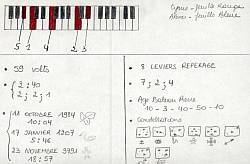 Cyrus - feuille Rouge
Atrus - feuille Bleue
5 1 4 2 3
• 59 volts
• 2 ; 40
2 ; 2 ; 1
• 11 OCTOBRE 1984
10 : 04
17 JANVIER 1207
5 : 46
23 NOVEMBRE 9791
18 : 57
• 8 LEVIERS REPERAGE
• 7 ; 2 ; 4
• Age Bateau
10 - 3 - 40 - 50 - 10
• Constellations